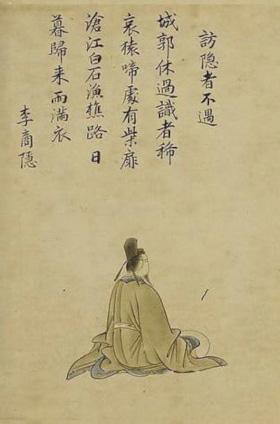 訪隐者不遇
城郭休過識者稀
哀猿啼處有柴扉
滄江白石漁樵路日
暮歸来雨滿衣
李商隐